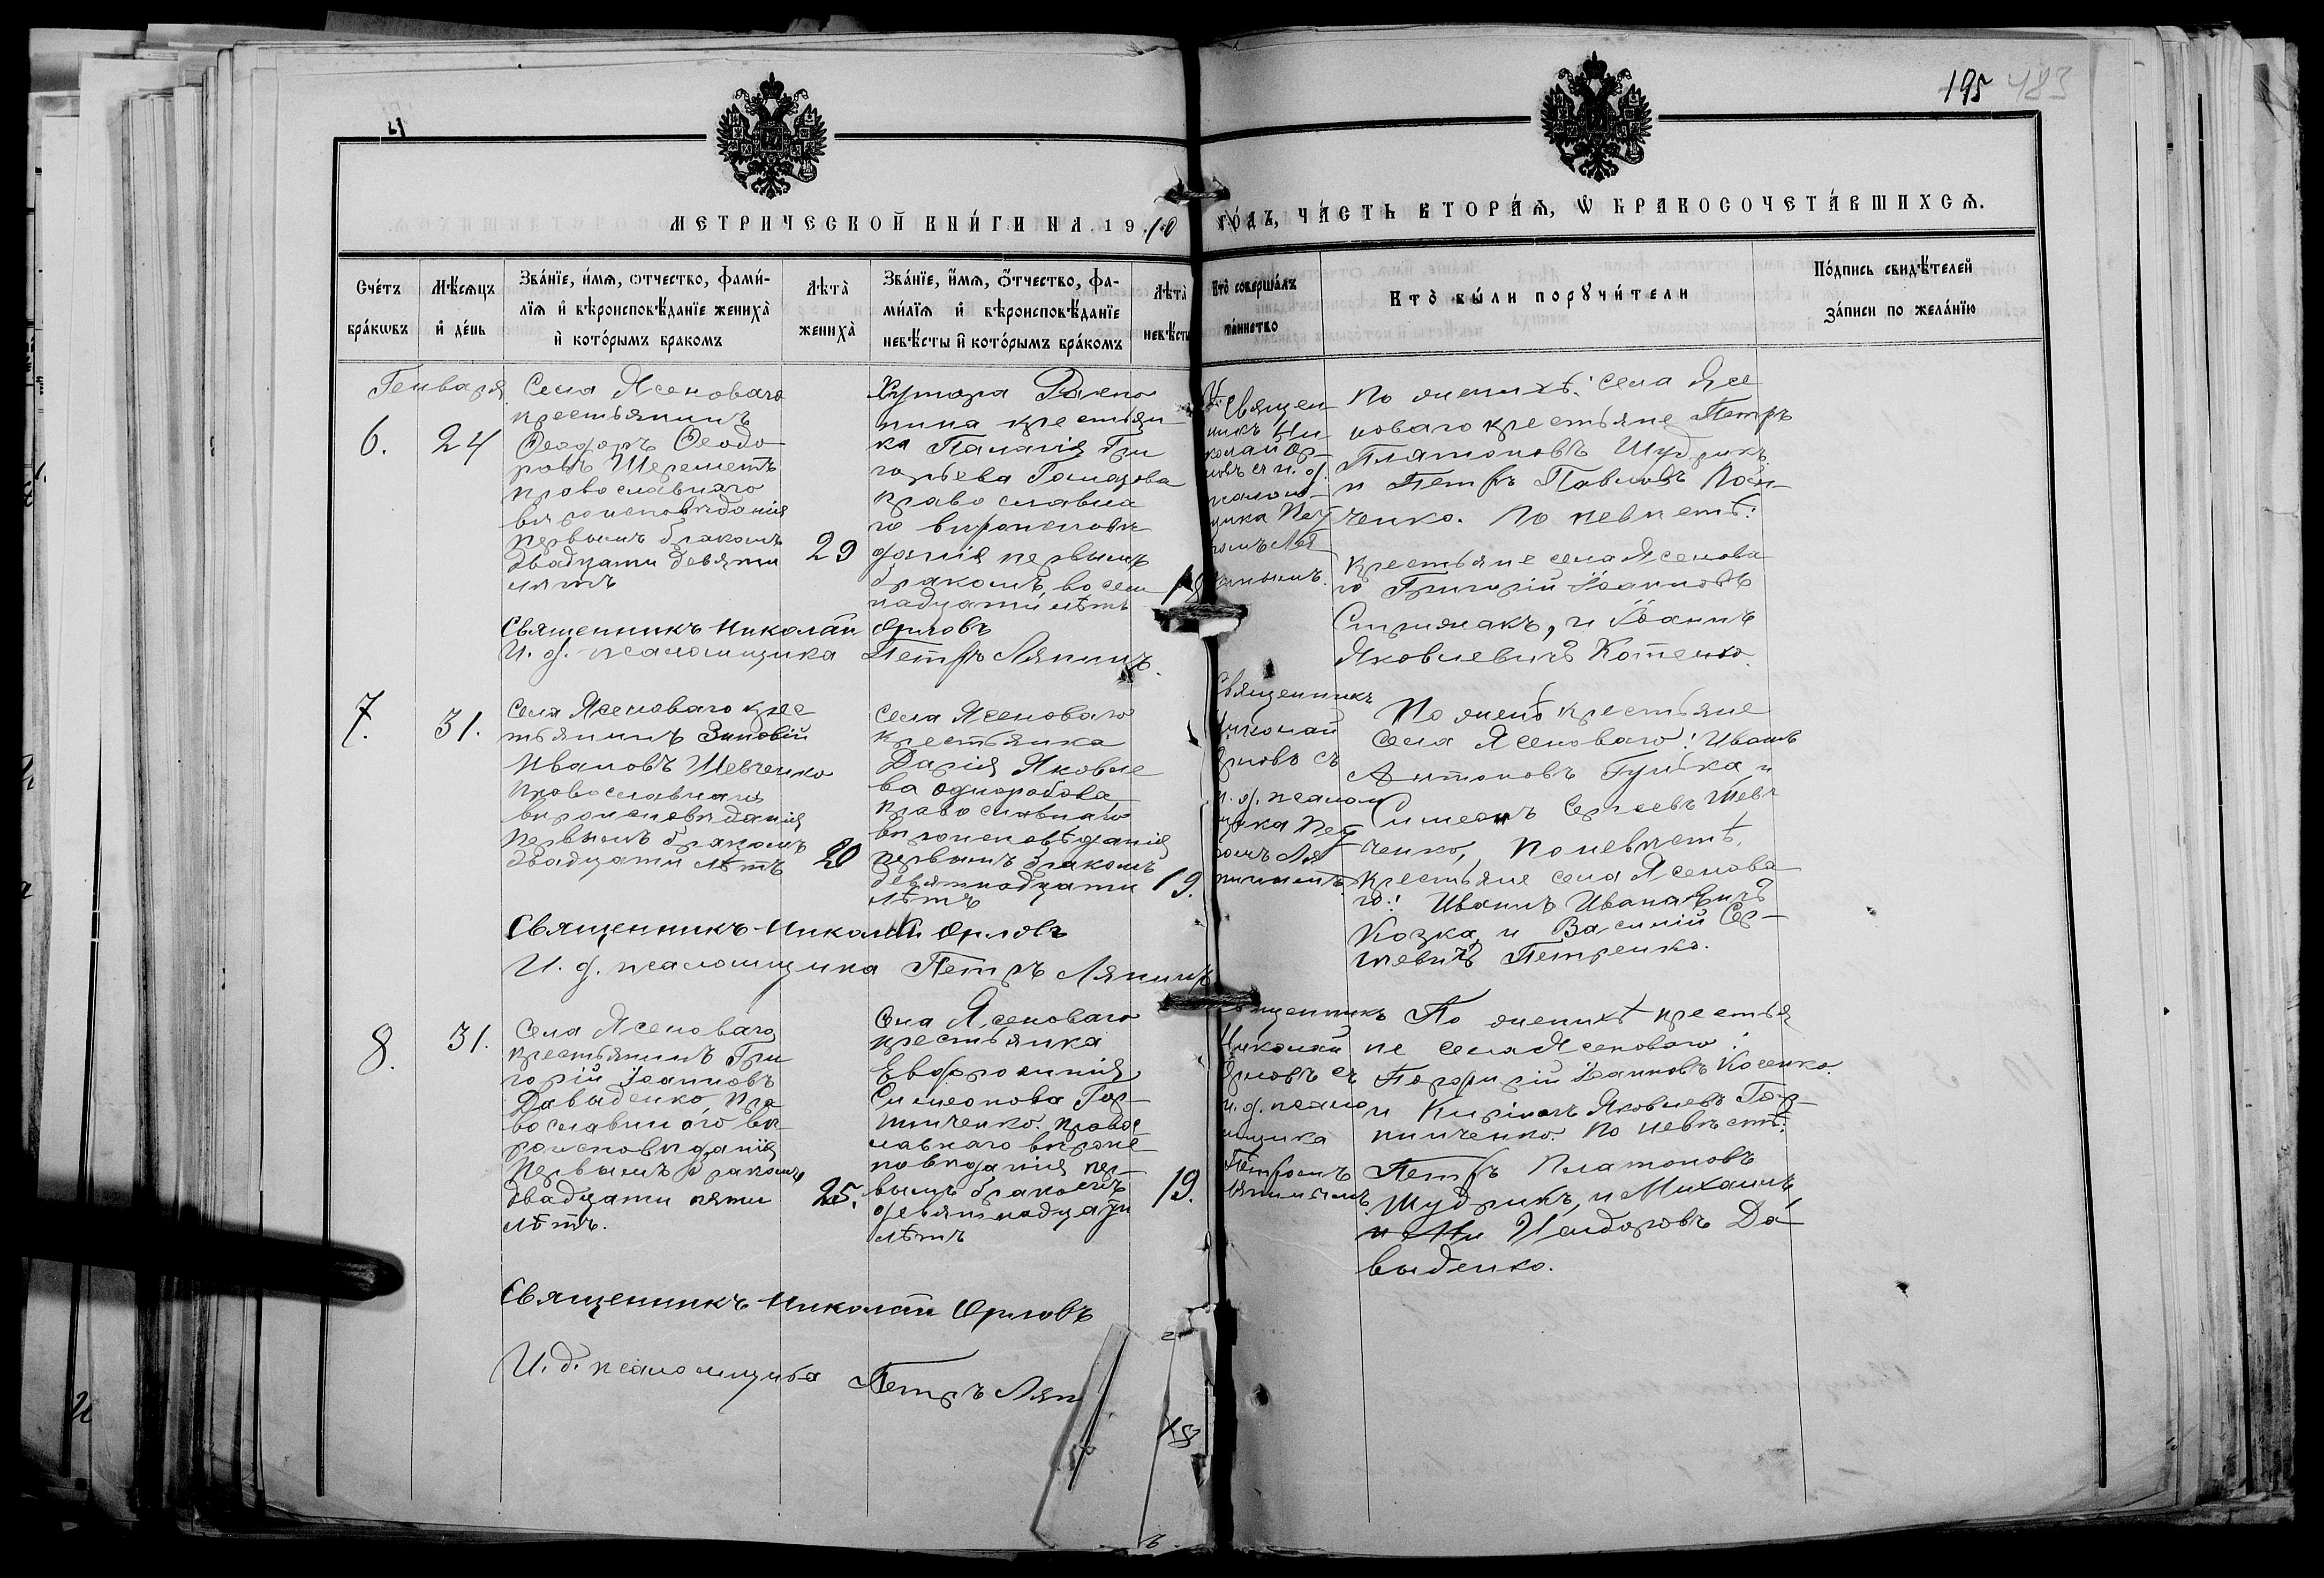 195 483
МЕТРИЧЕСКОЙ КНИ́ГИ НА 1910
ГО́ДЪ, ЧА́СТЬ ВТОРА́Ѧ, Ѡ БРАКОСОЧЕТА́ВШИХСѦ.
Сче́тъ бра́кѡвъ
Мѣ́сѧцъ и де́нь
Зва́нїе, и́мѧ, ѻтчество, фами́-
лїѧ и҆ вѣроисповѣ́данїе жениха̀
и҆ кото́рымъ бракомъ
Лѣта̀ жениха̀
Зва́нїе, и҆́мѧ, ѻ҆́тчество, фа-
ми́лїѧ и҆ вѣроисповѣ́данїе
невѣ́сты и҆ кото́рымъ бра́комъ
Лѣта̀ невѣ́сты
Кто̀ соверша́лъ та́инство
Кто̀ бы́ли порꙋчи́тели
По́дпись свидѣ́телей
за́писи по жела́нїю
Генваря
6.
24
Села Ясеноваго
крестьянинъ
Ѳеодоръ Ѳеодо
ровъ Шереметъ
православнаго
вѣроисповѣданія
первымъ бракомъ
двадцати девяти
лѣтъ
29
Хутора
крестьян
ка Палагія Гри
горьева
православна
го вѣроисповѣ
данія первымъ
бракомъ, восем
надцати лѣтъ
18
Священ
никъ Ни
колай Ор-
ловъ съ и. д.
псалом-
щика Пет
ромъ Ля
пинымъ.
По женихѣ: села Ясе
новаго крестьяне Петръ
Платоновъ Шудрикъ
и Петръ Павловъ
ченко. По невѣстѣ:
крестьяне села Ясенова
го Григорій Іоанновъ
Стрижакъ, и Іоаннъ
Яковлевичъ Котенко.
Священникъ Николай Орловъ
И. д. псаломщика Петръ Ляпинъ.
7.
31.
Села Ясеноваго крес
тьянинъ Зиновій
Ивановъ Шевченко
православнаго
вѣроисповѣданія
первымъ бракомъ
двадцати лѣтъ
20
Села Ясеноваго
крестьянка
Дарія Яковле
ва Одноробова
православнаго
вѣроисповѣданія
первымъ бракомъ
девятнадцати
лѣтъ
19.
Священникъ
Николай
Орловъ съ
и. д. псалом
щика Пет
ромъ Ля
пинымъ.
По жених крестьяне
села Ясеноваго: Иванъ
Антоновъ Гулька и
Симеонъ Сергѣевъ Шев
ченко, по невѣстѣ,
крестьяне села Ясенова
го: Иванъ Ивановичъ
Козка и Василій Сер-
гѣевичъ Петренко.
Священникъ Николай Орловъ
И. д. псаломщика Петръ Ляпинъ
8.
31.
Села Ясеноваго
крестьянинъ Гри
горій Іоанновъ
Давыденко пра
вославнаго вѣ
роисповѣданія
первымъ бракомъ
двадцати пяти
лѣтъ.
25.
Села Ясеноваго
крестьянка
Евфросинія
Симеонова Гор-
пинченко. правос
лавнаго вѣроис
повѣданія пер-
вымъ бракомъ
девятнадцати
лѣтъ
19.
Священникъ
Николай
Орловъ съ
и. д. псало
мщика
Петромъ
Ляпинымъ.
По женихѣ крестья
не села Ясеноваго:
Порфирій Іоанновъ Косенко
и Кирилъ Яковлевъ Гор-
пинченко. По невѣстѣ:
Петръ Платоновъ
Шудрикъ, и Михаилъ
Исидоровъ Да
выденко.
Священникъ Николай Орловъ
И. д. псаломщика Петръ Ляп